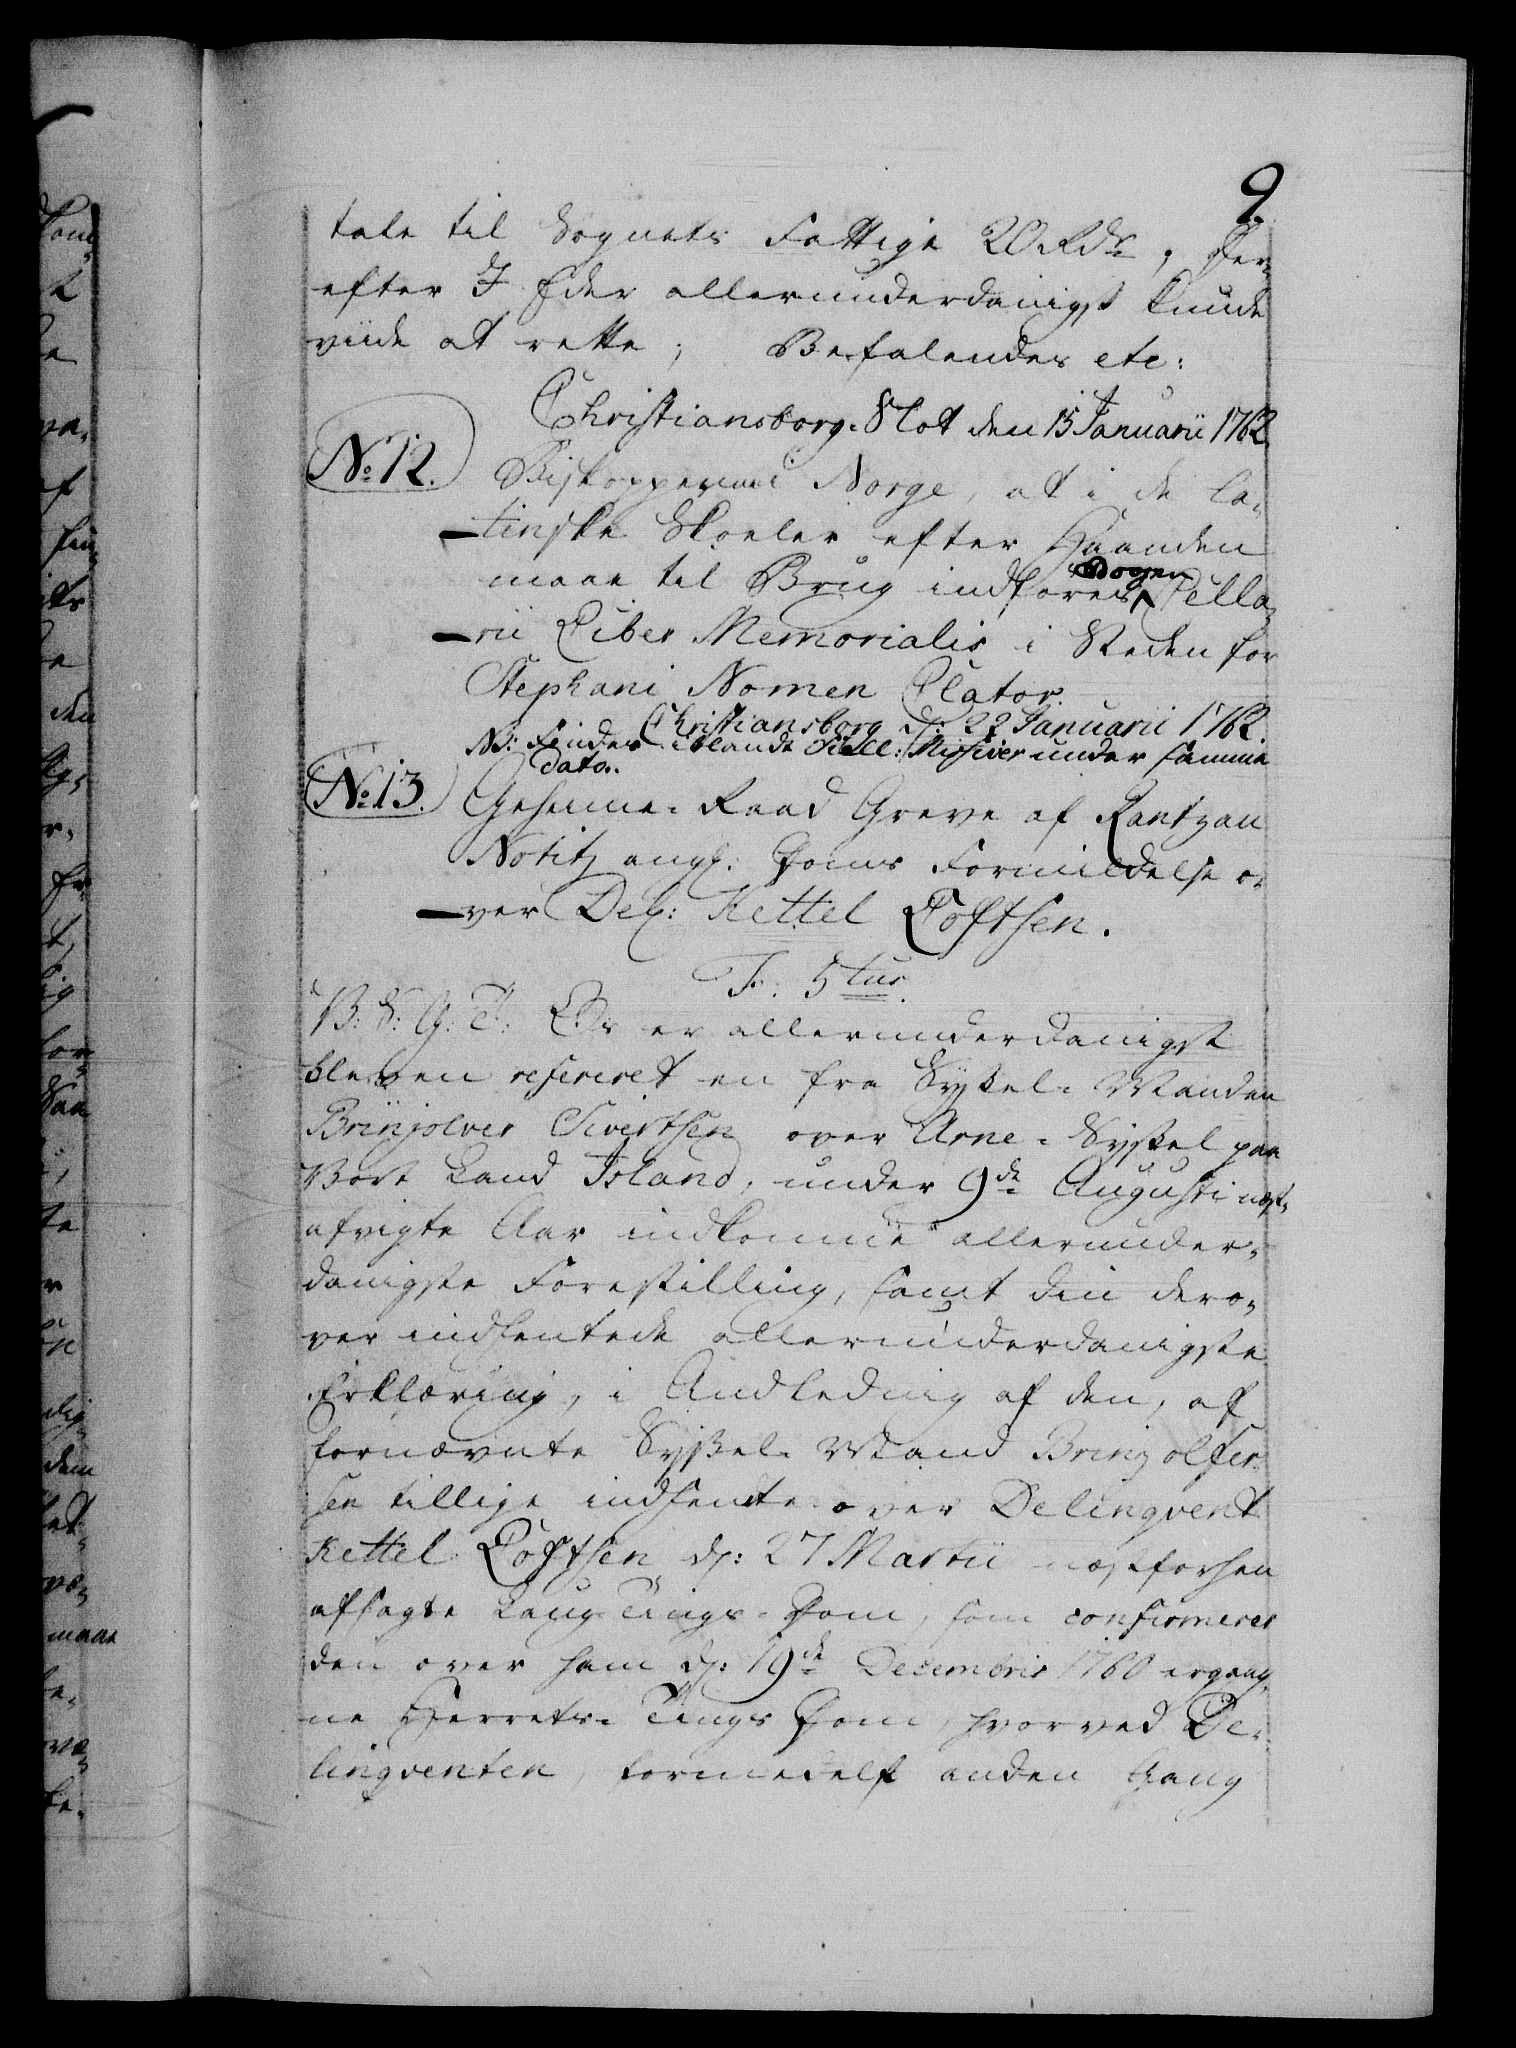 9.
tale til Sognets Fattige 20 Rdr; Der-
efter I Eder allerunderdanigst kunde
viide at rette; Befalendes etc:
Christiansborg-Slot den 15 Januarii 1762.
No. 12.
Biskopperne i Norge, at i de La-
tinske Skoeler efter Haanden
maae til Brug indføres Bogen Cella-
rii Liber Memorialis i Steden for
Stephani Nomenclator.
Christiansborg d: 22 Januarii 1762.
NB: findes iblandt Siell: Missiver under samme
dato.
No. 13.
Geheime-Raad Greve af Rantzau
Notitz angl: Doms Formildelse o-
ver Del: Kettel Loftsen.
F: 5tus.
V: S: G: T: Os er allerunderdanigst
bleven refereret en fra Syssel-Manden
Brinjolver Sivertsen over Arne-Syssel paa
Vort Land Island, under 9de Augusti næst-
afvigte Aar indkomne allerunder-
danigste Forestilling, samt din dero-
ver indhentede allerunderdanigste
Erklæring, i Andledning af den, af
fornævnte Syssel-Mand Brinjolfer-
sen tillige indsendte over Delinqvent
Kettel Loftsen d: 27 Martii næstforhen
afsagte Laug-Tings-Dom, som confirmerer
den over ham d: 19de Decembris 1760 ergang-
ne Herrets-Tings Dom, hvorved De-
linqventen, formedelst anden Gang